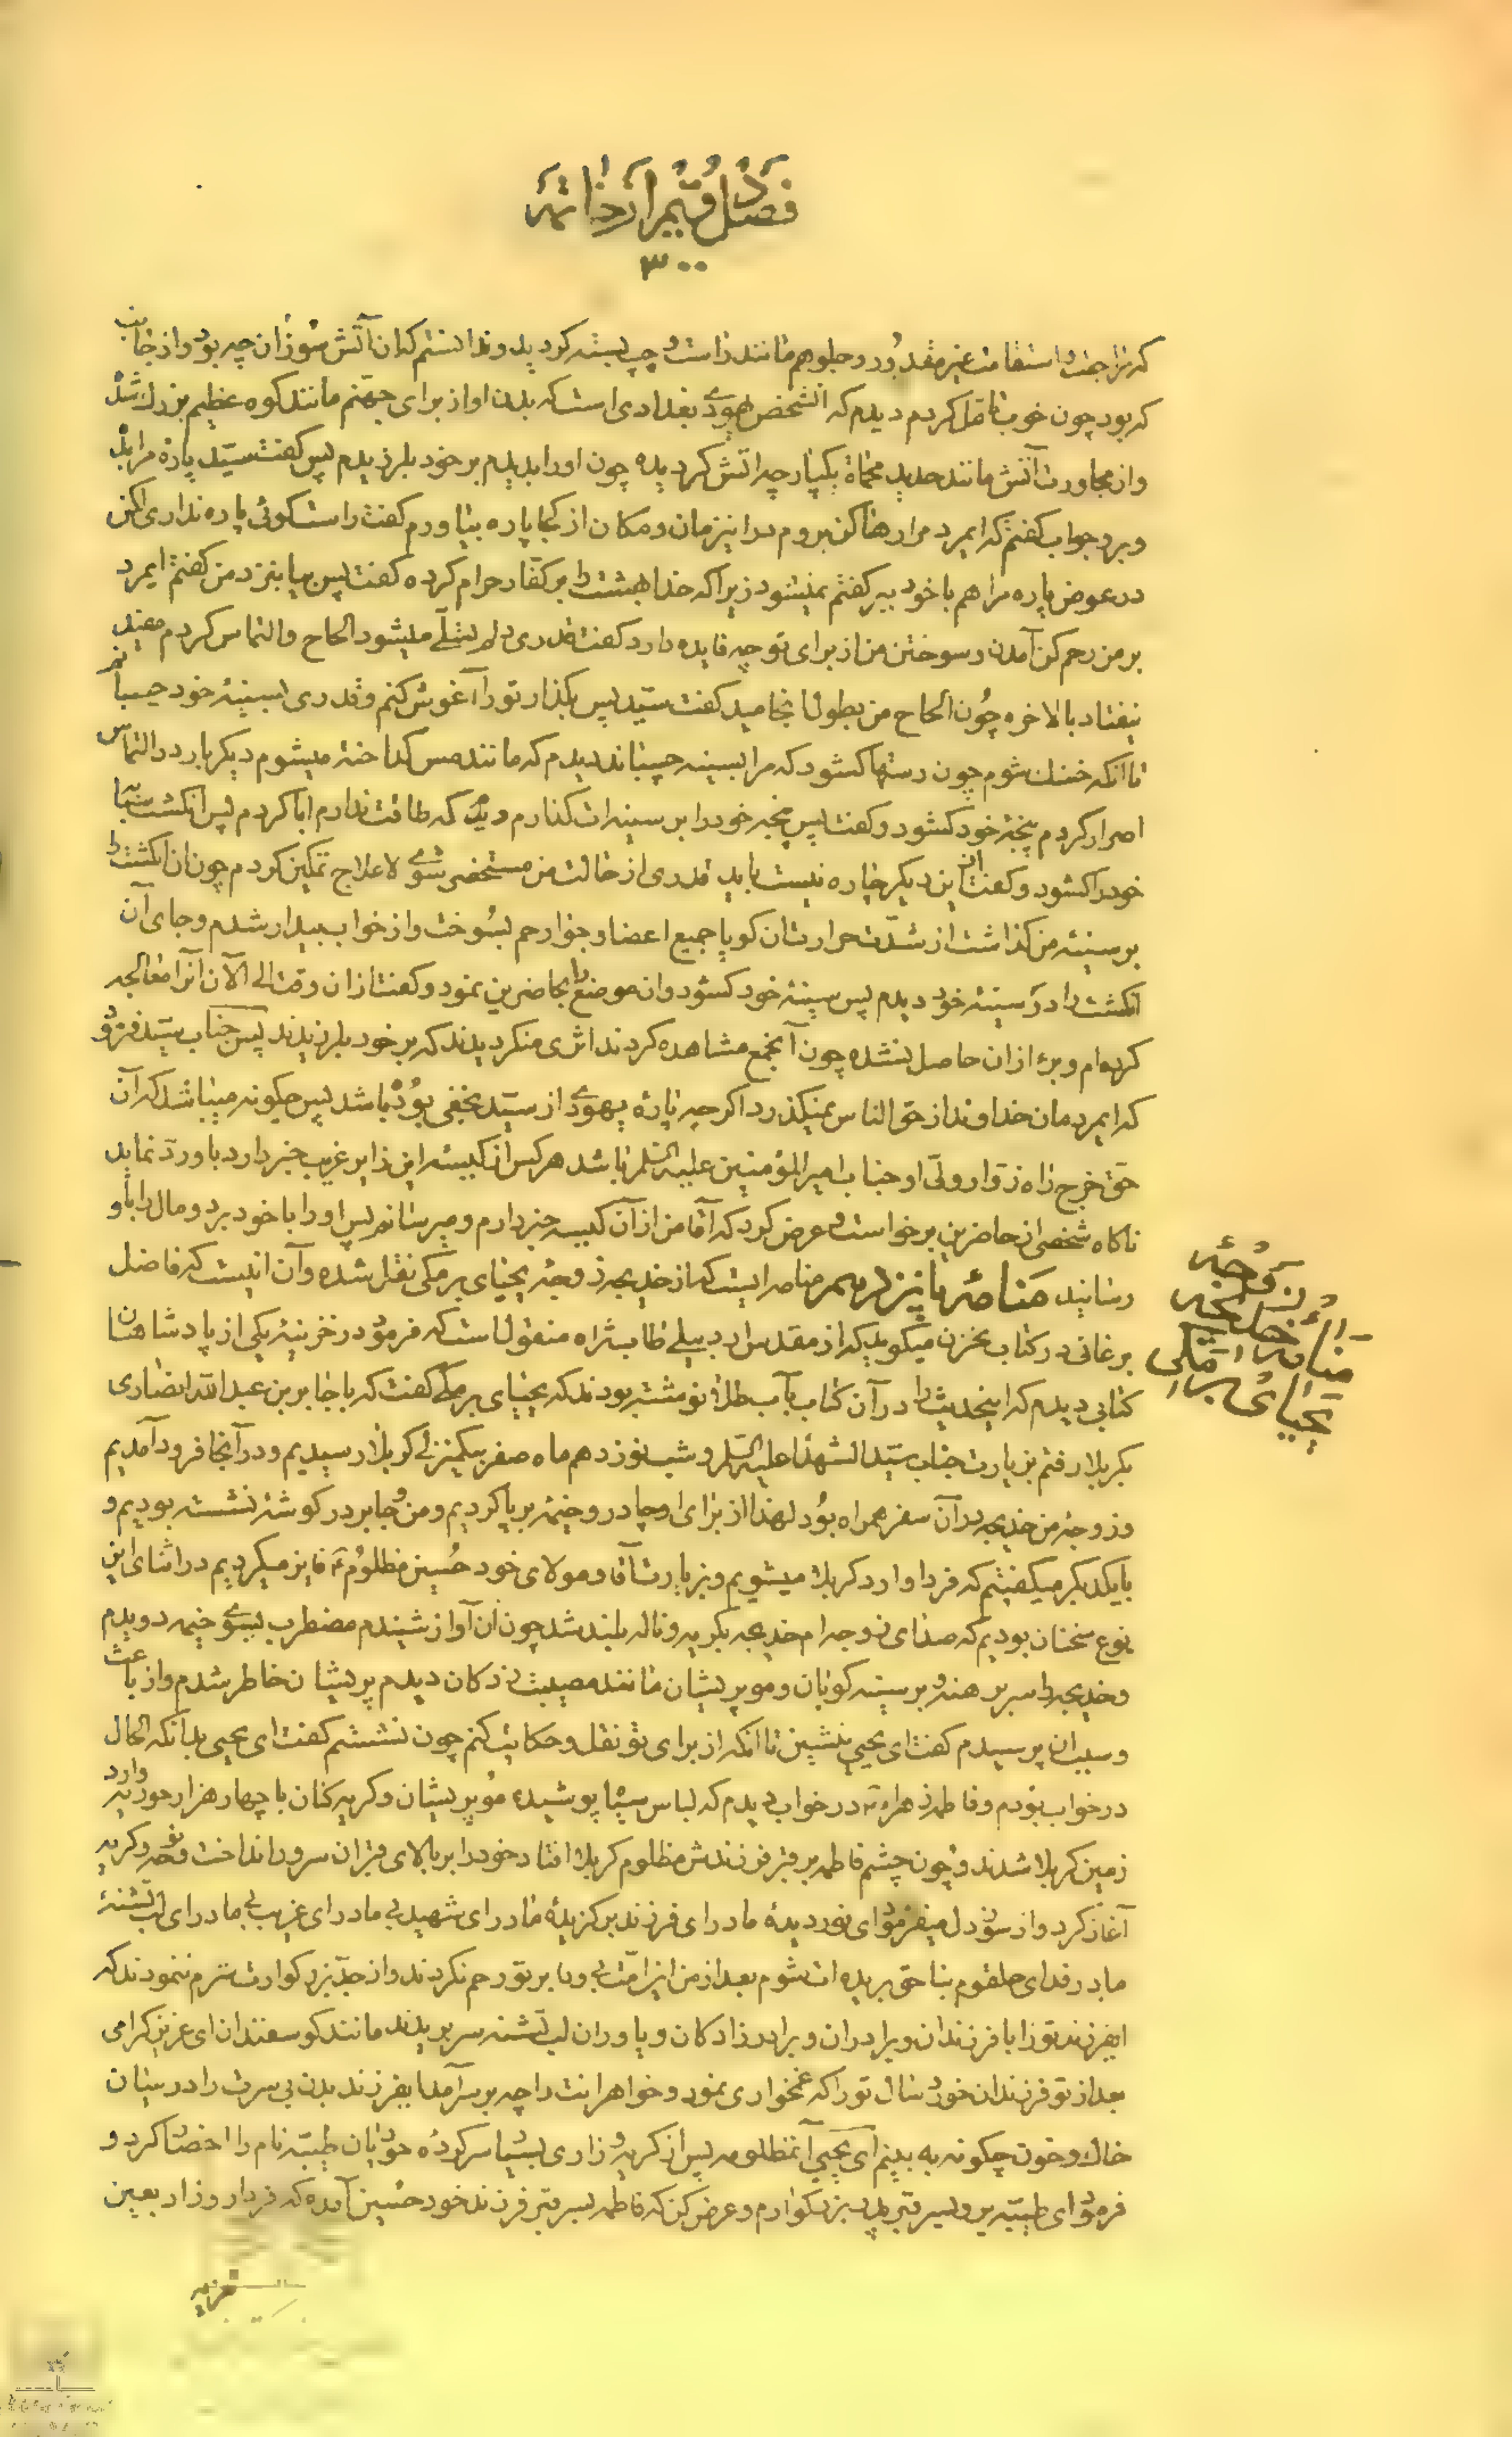 فصل دویم از خاتمه
۳۰۰
که مراجعت و استقامت غیر مقدور و جلو هم مانند راست و چپ بسته گردید و ندانستم که آن آتش سوزان چه بود و از جانب
که بود چون خوب تامل کردم دیدم که آنشخص یهودی بغدادی است که بدن او از برای جهنم مانند کوه عظیم بزرک شده
و از مجاورت آتش مانند حدید محماة یکپارچه آتش گردیده چون او را بدیدم بر خود بلرزیدم پس کفت سید پاره مرا بده
در جواب کفتم که ایمرد مرا رها کن بروم در این زمان و مکان از کجا پاره بیاورم کفت راست کوئی پاره نداری لکن
در عوض پاره مرا هم با خود ببر کفتم نمیشود زیرا که خدا بهشت را بر کفار حرام کرده کفت پس بیا بنزد من کفتم ایمرد
بر من رحم کن آمدن و سوختن من از برای تو چه فایده دارد کفت قدری دلم تسلی میشود الحاح و التماس کردم مفید
نیفتاد بالاخره چون الحاح من بطول انجامید کفت سید پس بکذار تو را آغوش کنم و قدری بسینهٔ خود چسبانم
تا آنکه خنک شوم چون دستها کشود که مرا بسینه چسباند دیدم که مانند مس کداخته میشوم دیکر بار در التماس
اصرار کردم پنجهٔ خود کشود و کفت پس پنجه خود را بر سینه ات کذارم دیدم که طاقت ندارم ابا کردم پس انکشت سبابهٔ
خود را کشود و کفت از این دیکر چاره نیست باید قدری از حالت من مستحضر شوی لاعلاج تمکین کردم چون آن انکشت را
بر سینه من کذاشت از شدت حرارت آن کویا جمیع اعضا و جوارحم بسوخت و از خواب بیدار شدم و جای آن
انکشت را در سینهٔ خود دیدم پس سینهٔ خود کشود و آن موضع را بحاضرین نمود و کفت از آن وقت الی الآن آنرا معالجه
کرده ام و برء از آن حاصل نشده چون آنجمع مشاهده کردند اثری منکر دیدند که بر خود بلرزیدند پس جناب سید فرمود
که ایمردمان خداوند از حق الناس نمیکذرد اکر چه پارهٔ یهودی از سید نجفی بوده باشد پس چکونه میباشد که آن
حق خرج راه زوار ولی او جناب امیر المؤمنین علیه السلم باشد هر کس از کیسه این زایر غریب خبر دارد باو رد نماید
ناکاه شخصی از حاضرین برخاست و عرض کرد که آقا من از آن کیسه خبر دارم و میرسانم پس او را با خود برد و مال را باو
رسانید منامهٔ پانزدهم منامه ایست که از خدیجه زوجهٔ یحیای برمکی نقل شده و آن اینست که فاضل
برغانی در کتاب مخزن میکوید که از مقدس اردبیلی طاب ثراه منقول است که فرمود در خزینهٔ یکی از پادشاهان
کتابی دیدم که اینحدیث را در آن کتاب بآب طلا نوشته بودند که یحیای برمکی کفت که با جابر بن عبد الله انصاری
بکربلا رفتم بزیارت جناب سید الشهدا علیه السلم و شب نوزدهم ماه صفر بیکمنزلی کربلا رسیدیم و در آنجا فرود آمدیم
و زوجهٔ من خدیجه در آن سفر همراه بود لهذا از برای او چادر و خیمه برپا کردیم و من و جابر در کوشهٔ نشسته بودیم و
با یکدیکر میکفتیم که فردا وارد کربلا میشویم و بزیارت آقا و مولای خود حسین مظلوم ع فایز میکردیم در اثنای این
نوع سخنان بودیم که صدای زوجه ام خدیجه بکریه و ناله بلند شد چون آن آواز شنیدم مضطرب بسوی خیمه دویدم
و خدیجه را سر برهنه و بر سینه کوبان و مو پریشان مانند مصیبت زدکان دیدم پریشان خاطر شدم و از باعث
و سبب آن پرسیدم کفت ای یحیی بنشین تا آنکه از برای تو نقل و حکایت کنم چون نشستم کفت ای یحیی بدانکه الحال
در خواب بودم و فاطمه زهراء ع در خواب دیدم که لباس سیاه پوشیده مو پریشان و کریه کنان با چهار هزار حوریه وارد
زمین کربلا شدند و چون چشم فاطمه بر قبر فرزندش مظلوم کربلا افتاد خود را بر بالای قبر آن سرور انداخت و نوحه و کریه
آغاز کرد و از سوز دل میفرمود ای نور دیدهٔ مادر ای فرزند برکزیدهٔ مادر ای شهید بی مادر ای غریب بی مادر ای لب تشنهٔ
مادر فدای حلقوم بناحق بریده ات شوم بعد از من این امت بی وفا بر تو رحم نکردند و از جد بزرکوارت شرم ننمودند که
ایفرزند تو را با فرزندان و برادران و برادرزادکان و یاوران لب تشنه سر بریدند مانند کوسفندان ای عزیز کرامی
بعد از تو فرزندان خورد سال تو را که غمخواری نمود و خواهرانت را چه بر سر آمد ایفرزند بدن بی سرت را در میان
خاک و خون چکونه به بینم ای یحیی آنمظلومه پس از کریه و زاری بسیار سرکردهٔ حوریان طیبه نام را احضار کرد و
فرمود ای طیبه برو بسر قبر پدر بزرکوارم و عرض کن که فاطمه بسر قبر فرزند خود حسین آمده که فردا روز اربعین
منامهٔ زوجهٔ
خدیجه
یحیای برمکی